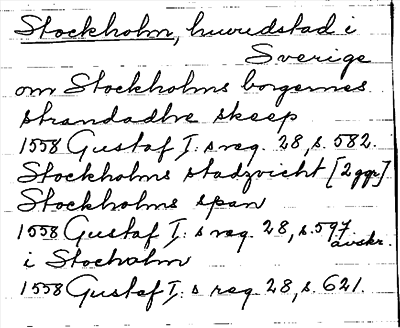 Stockholm, huvudstad i
Sverige
om Stockholms borgernes
strandadhe skeep
1558 Gustaf I: s reg. 28, s. 582.
Stockholms stadzvicht [2 ggr]
Stockholms span
1558 Gustaf I: s reg. 28, s. 597.
avskr.
i Stocholm
1558 Gustaf I: s reg. 28, s. 621.